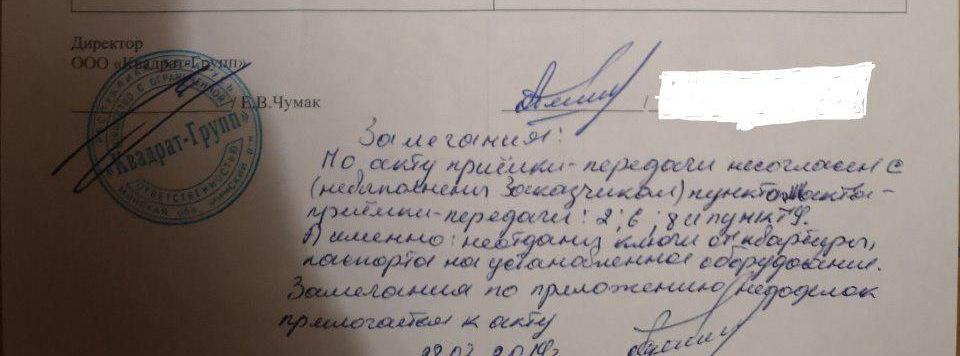 Директор
ООО «Квадрат-Групп»
/ Е.В.Чумак /
«Квадрат-Групп»
ОТВЕТСТВЕННОСТЬЮ
Замечания:
По акту приёмки-передачи несогласен с
(невыполнены Заказчиком) пунктом акта
приёмки-передачи: 2; 6; 8 и пункт 9.
А именно: неотданы ключи от квартиры,
паспорта на установленное оборудование.
Замечания по приложению недоделок
прилогается к акту